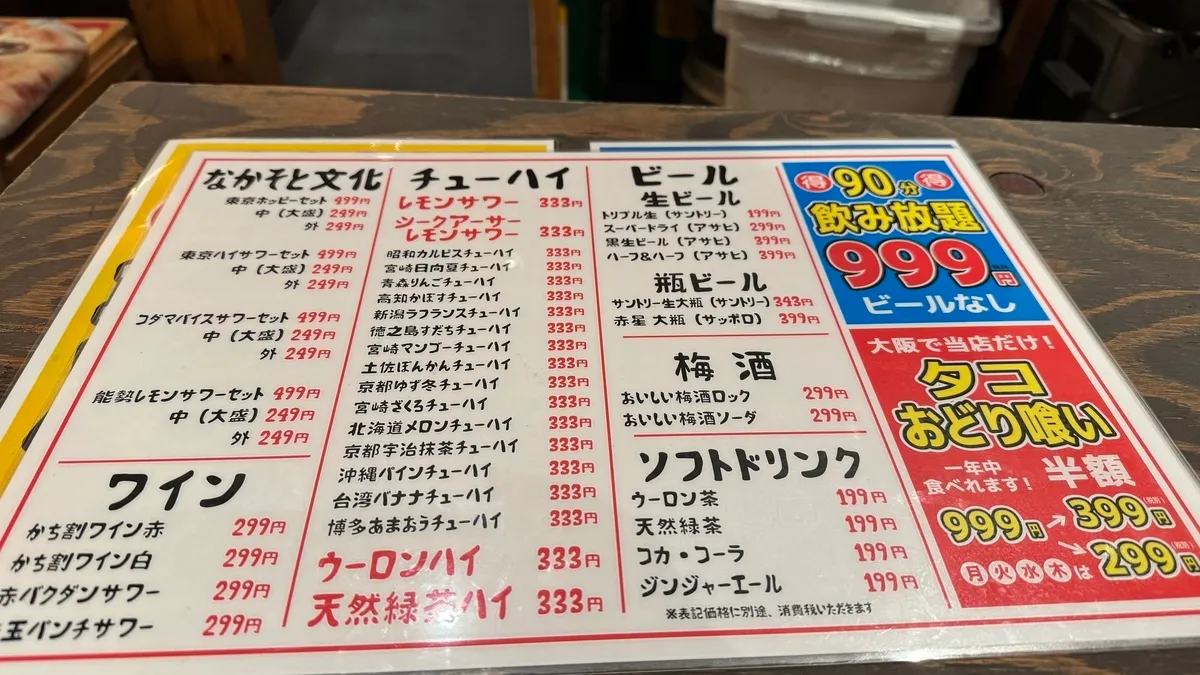 なかそと文化
東京ホッピーセット 499円
中（大盛）249円
外 249円
東京ハイサワーセット 499円
中（大盛）249円
外 249円
コダマバイスサワーセット 499円
中（大盛）249円
外 249円
能勢レモンサワーセット 499円
中（大盛）249円
外 249円
ワイン
かち割ワイン赤 299円
かち割ワイン白 299円
赤バクダンサワー 299円
玉パンチサワー 299円
チューハイ
レモンサワー 333円
シークアーサー
レモンサワー 333円
昭和カルピスチューハイ 333円
宮崎日向夏チューハイ 333円
青森りんごチューハイ 333円
高知かぼすチューハイ 333円
新潟ラフランスチューハイ 333円
徳之島すだちチューハイ 333円
宮崎マンゴーチューハイ 333円
土佐ぽんかんチューハイ 333円
京都ゆず冬チューハイ 333円
宮崎ざくろチューハイ 333円
北海道メロンチューハイ 333円
京都宇治抹茶チューハイ 333円
沖縄パインチューハイ 333円
台湾バナナチューハイ 333円
博多あまおうチューハイ 333円
ウーロンハイ 333円
天然緑茶ハイ 333円
ビール
生ビール
トリプル生（サントリー） 199円
スーパードライ（アサヒ） 299円
黒生ビール（アサヒ） 399円
ハーフ&ハーフ（アサヒ） 399円
瓶ビール
サントリー生大瓶（サントリー）343円
赤星 大瓶（サッポロ） 399円
梅酒
おいしい梅酒ロック 299円
おいしい梅酒ソーダ 299円
ソフトドリンク
ウーロン茶 199円
天然緑茶 199円
コカ・コーラ 199円
ジンジャーエール 199円
※表記価格に別途、消費税いただきます
得 90分 得
飲み放題
999円
ビールなし
大阪で当店だけ！
タコ
おどり喰い
一年中
食べれます！
半額
999円→399円（税別）
月火水木は→299円（税別）